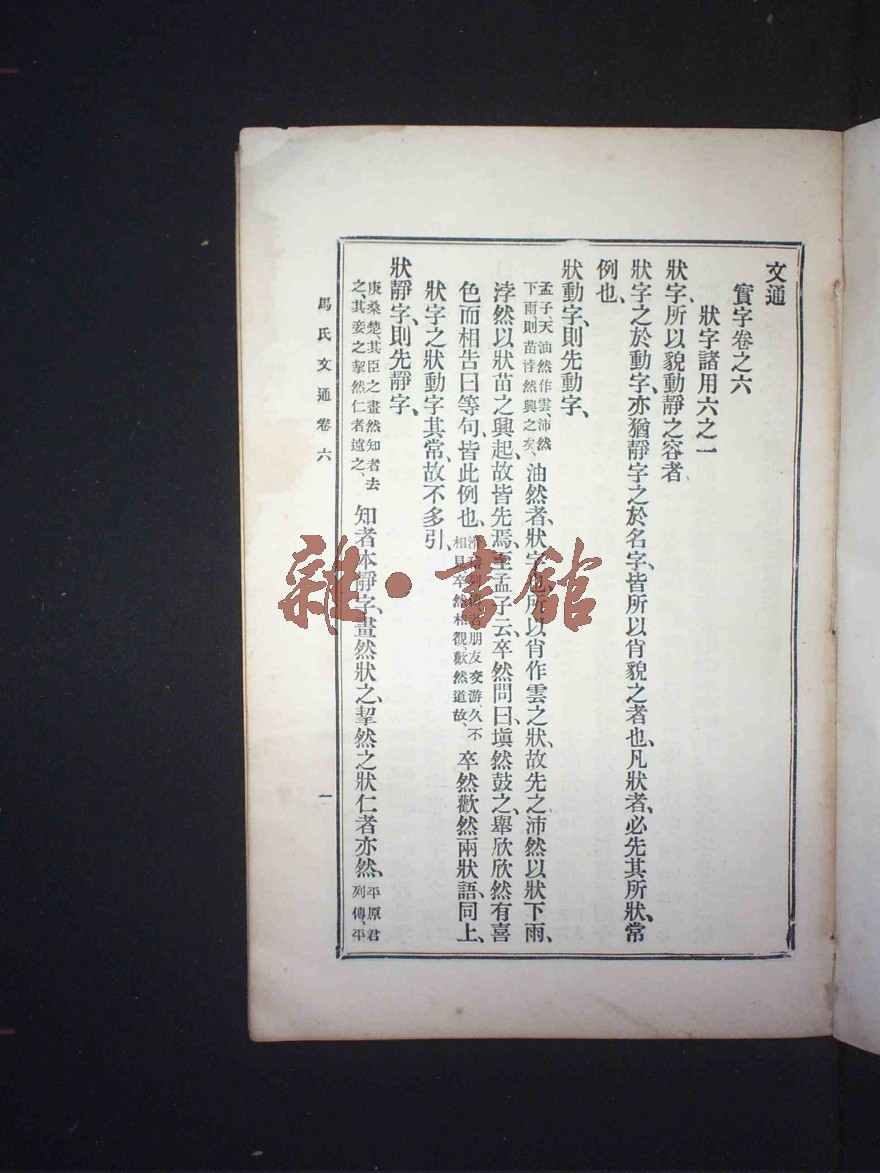 文通
實字卷之六
狀字諸用六之一
狀字、所以貌動靜之容者
狀字之於動字、亦猶靜字之於名字、皆所以肖貌之者也、凡狀者、必先其所狀、常
例也、
狀動字、則先動字、
孟子、天油然作雲、沛然
下雨、則苗浡然興之矣、
油然者、狀字也、所以肖作雲之狀、故先之沛然以狀下雨、
浡然以狀苗之興起、故皆先焉、至孟子云、卒然問曰、塡然鼓之、舉欣欣然有喜
色而相告曰等句、皆此例也、
滑稽列傳、若朋友交游、久不
相見、卒然相覩、歡然道故、
卒然歡然兩狀語、同上、
狀字之狀動字其常、故不多引、
狀靜字、則先靜字、
庚桑楚、其臣之畫然知者去
之、其妾之挈然仁者遠之、
知者本靜字、畫然狀之、挈然之狀仁者亦然、
平原君
列傳、平
馬氏文通卷六
一
雜·書館